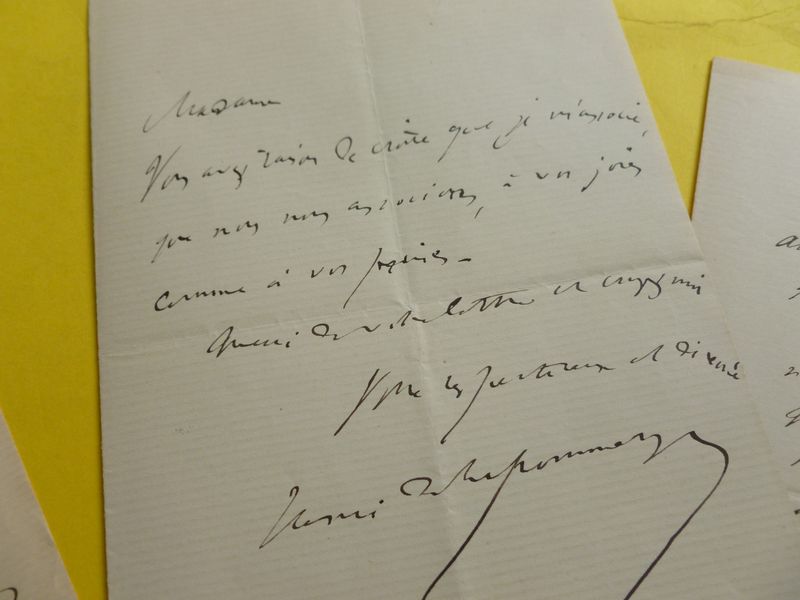 Madame
Vous avez raison de croire que je m'associe,
que nous nous associons, à vos joies
comme à vos peines.
Merci de votre lettre et croyez moi
Votre respectueux et dévoué
Henri de Lapommeraye